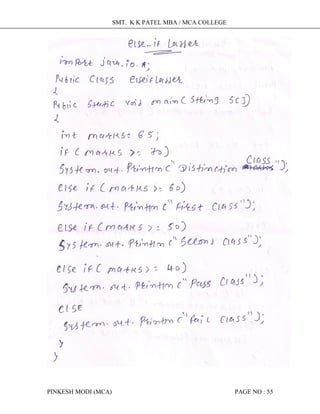 SMT. K K PATEL MBA / MCA COLLEGE
else..if Lasser
import java.io.*;
Public Class elseifLasser
{
Public Static void main(String s[])
{
int marks = 65;
if (marks >= 70)
System.out.Println("Distinction Class");
else if (marks >= 60)
System.out.Println("First Class");
else if (marks >= 50)
System.out.Println("Second Class");
else if (marks >= 40)
System.out.Println("Pass Class");
else
System.out.Println("fail Class");
}
}
PINKESH MODI (MCA) PAGE NO : 55